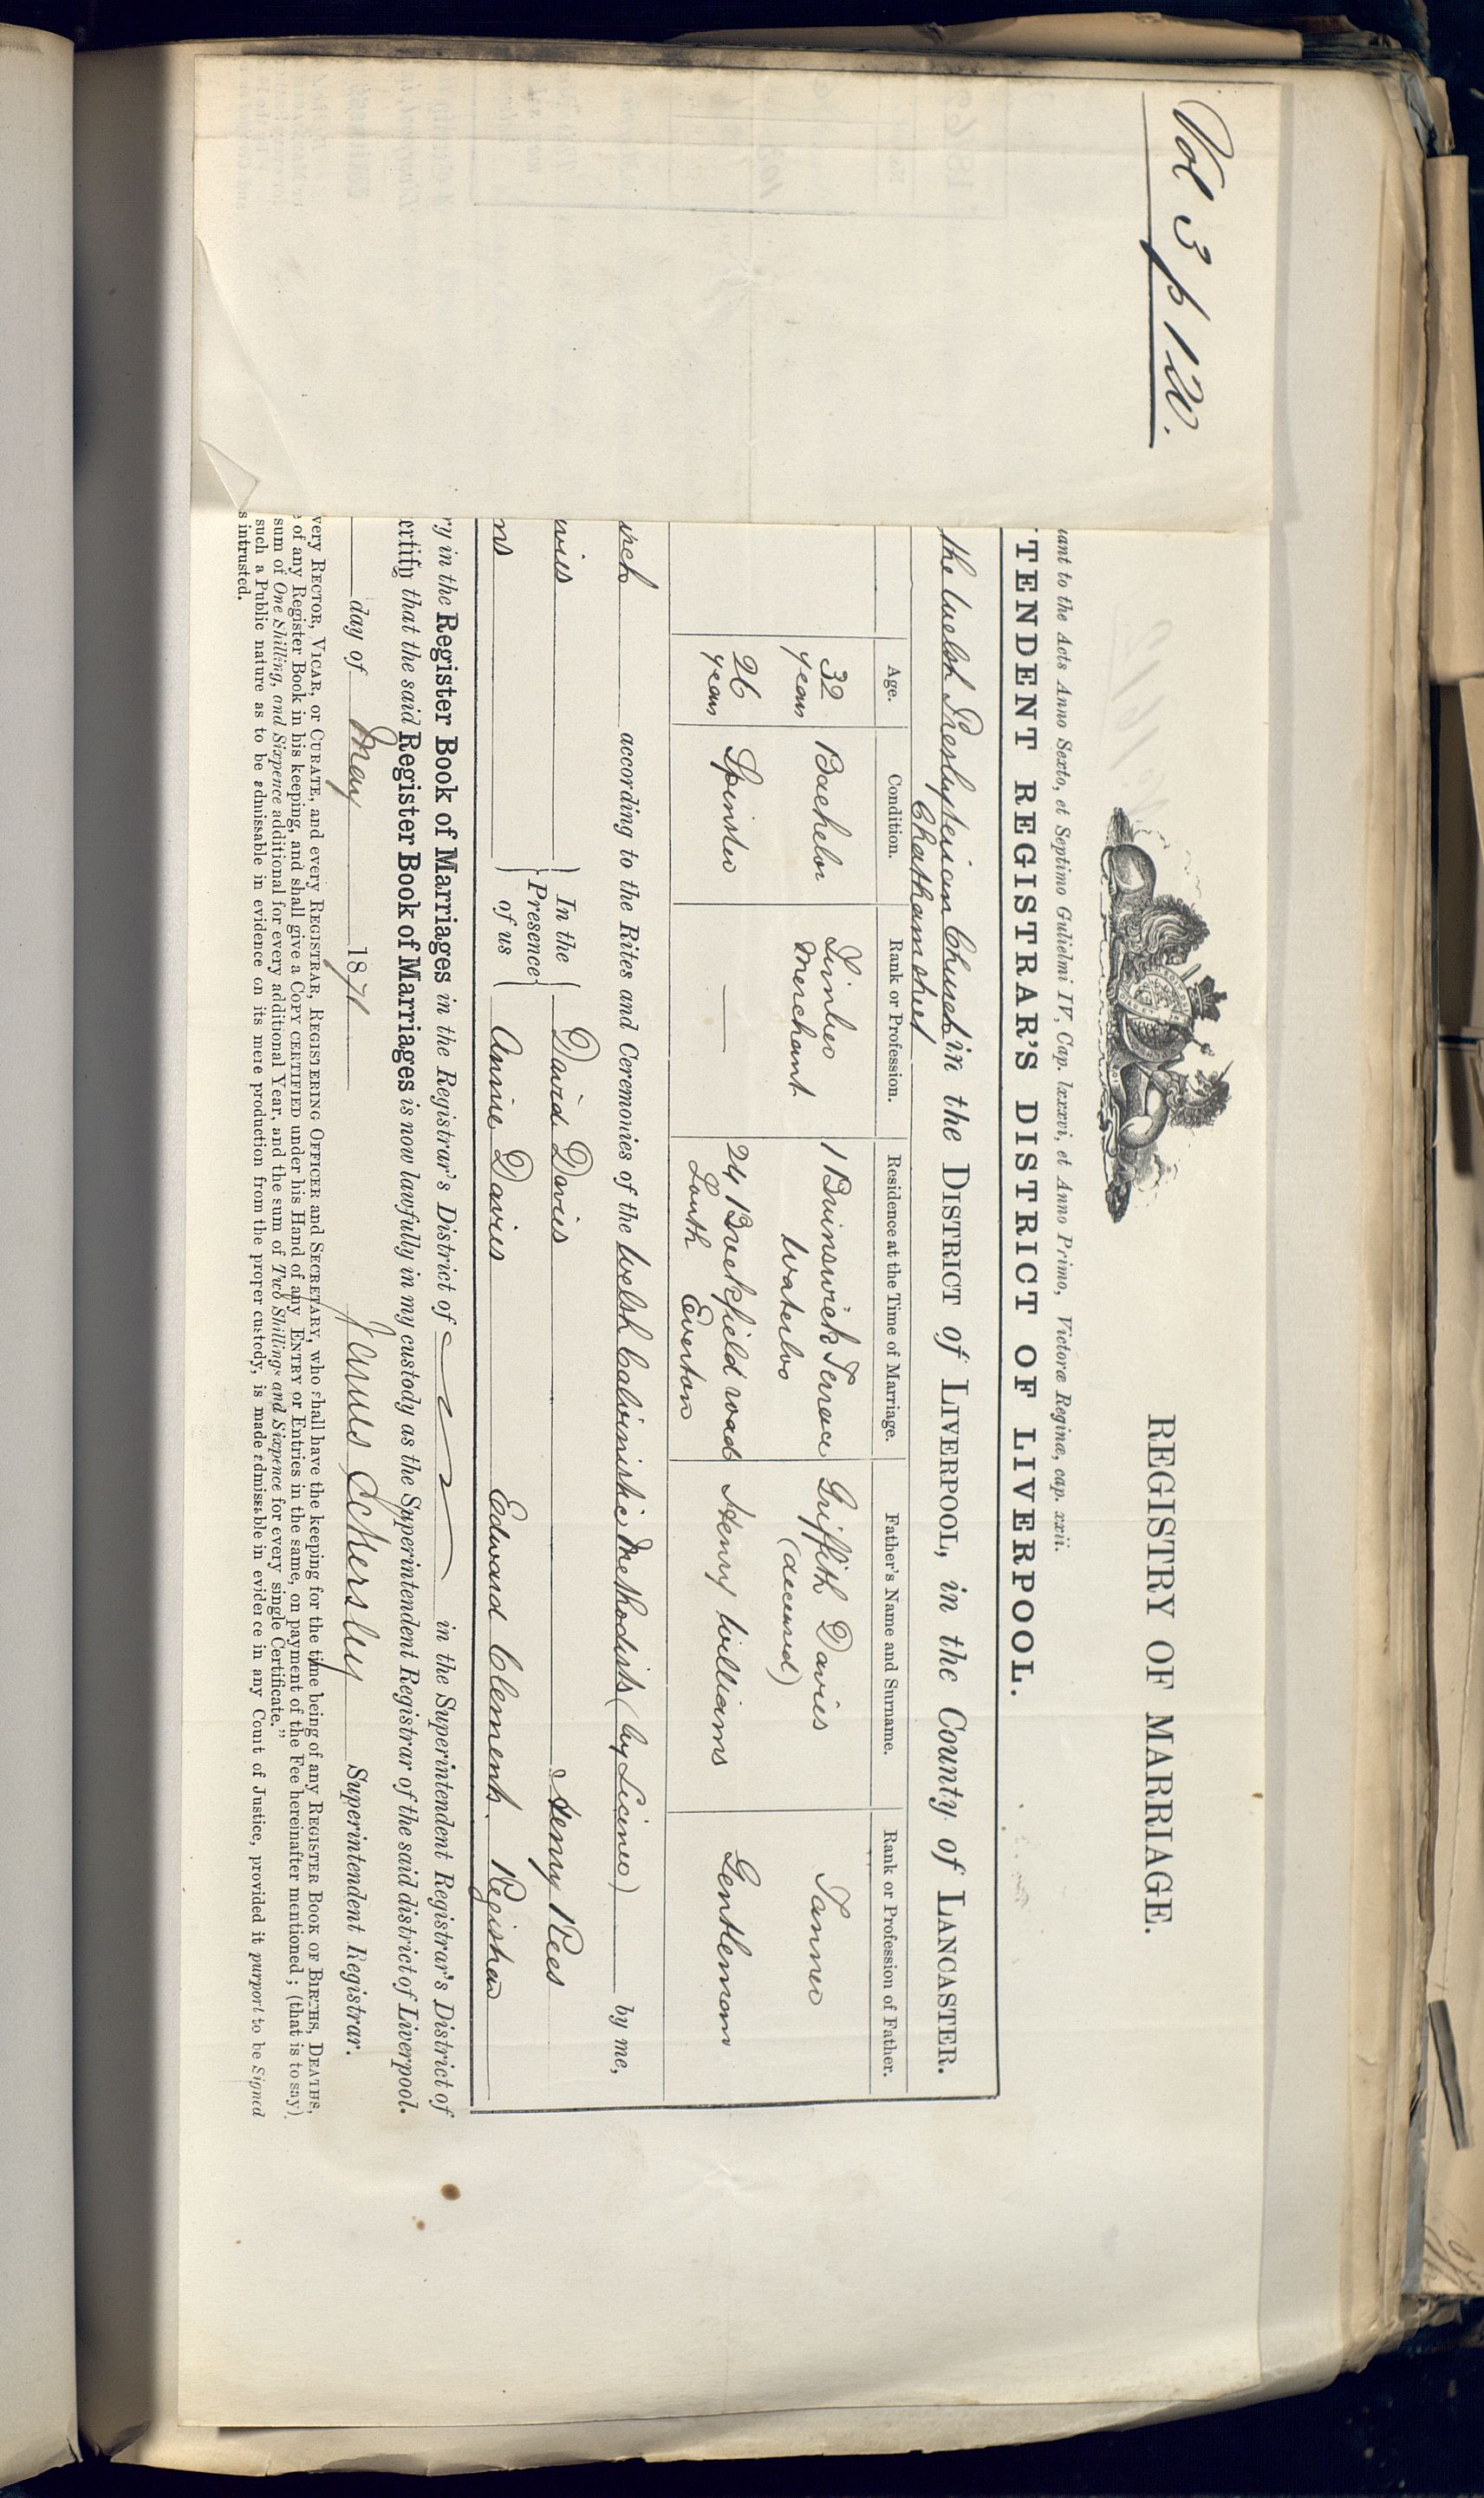 Vol 3 p 120.
REGISTRY OF MARRIAGE.
uant to the Acts Anno Sexto, et Septimo Gulielmi IV, Cap. lxxxvi, et Anno Primo, Victoræ Reginæ, cap. xxii.
TENDENT REGISTRAR'S DISTRICT OF LIVERPOOL.
the Welsh Presbyterian Church in the DISTRICT of LIVERPOOL, in the County of LANCASTER.
Chatham street
Age. Condition. Rank or Profession. Residence at the Time of Marriage. Father's Name and Surname. Rank or Profession of Father.
32 years Bachelor Timber Merchant 1 Brunswick Terrace Waterloo Griffith Davies (deceased) Tanner
26 years Spinster — 24 Breckfield road South Everton Henry Williams Gentleman
urch according to the Rites and Ceremonies of the Welsh Calvinistic Methodists (by Licence) by me,
vies In the Presence of us David Davies Henry Rees
ms Annie Davies Edward Clement Registrar
ry in the Register Book of Marriages in the Registrar's District of in the Superintendent Registrar's District of
ertify that the said Register Book of Marriages is now lawfully in my custody as the Superintendent Registrar of the said district of Liverpool.
day of May 1871 James Eckersley Superintendent Registrar.
very RECTOR, VICAR, or CURATE, and every REGISTRAR, REGISTERING OFFICER and SECRETARY, who shall have the keeping for the time being of any REGISTER BOOK OF BIRTHS, DEATHS,
e of any Register Book in his keeping, and shall give a COPY CERTIFIED under his Hand of any ENTRY or Entries in the same, on payment of the Fee hereinafter mentioned; (that is to say)
sum of One Shilling, and Sixpence additional for every additional Year, and the sum of Two Shillings and Sixpence for every single Certificate."
such a Public nature as to be admissable in evidence on its mere production from the proper custody, is made admissable in evidence in any Court of Justice, provided it purport to be Signed
s intrusted.